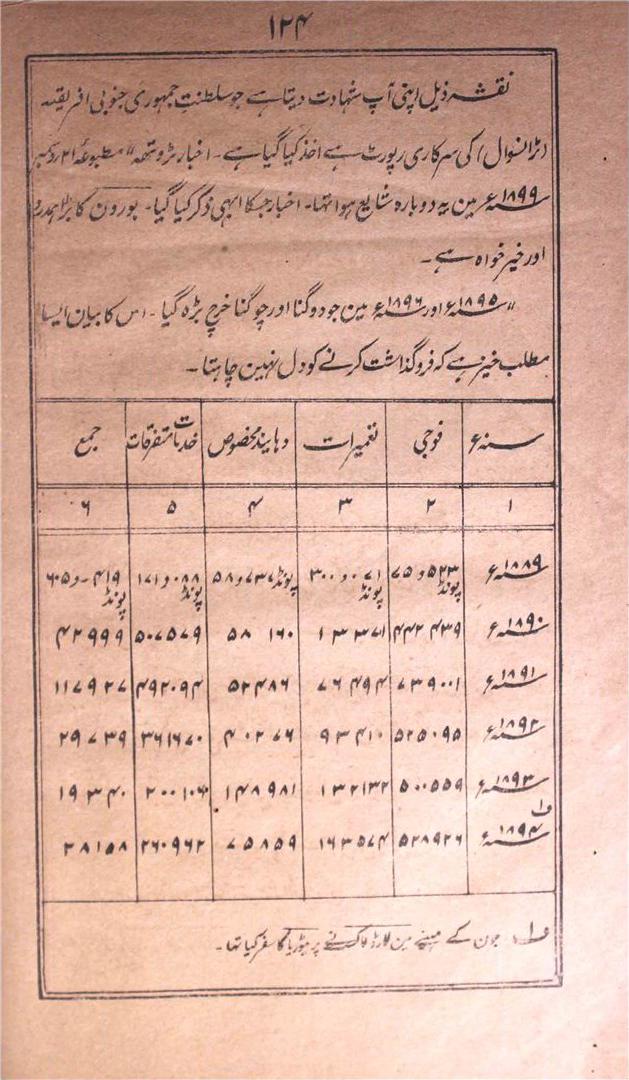 ۱۲۴
نقشہ ذیل اپنی آپ شہادت دیتا ہے جو سلطنت جمہوری جنوبی افریقہ
(ٹرانسوال) کی سرکاری رپورٹ سے اخذ کیا گیا ہے۔ اخبار ٹروتھہ" مطبوعہ ۲۱ دسمبر
سنہ ۱۸۹۹ء مین یہ دوبارہ شایع ہوا تہا۔ اخبار جسکا ابہی ذکر کیا گیا۔ بورون کا بڑا ہمدرد
اور خیر خواہ ہے۔
"سنہ ۱۸۹۵ء اور سنہ ۱۸۹۶ء مین جو دوگنا اور چوگنا خرچ بڑہ گیا۔ اس کا بیان ایسا
مطلب خیز ہے کہ فروگذاشت کرنے کو دل نہین چاہتا۔
سنہ ء فوجی تعمیرات دہایند مخصوص خدمات متفرقات جمع
۱ ۲ ۳ ۴ ۵ ۶
سنہ ۱۸۸۹ء ۷۵و۵۲۳ پونڈ ۳۰۰و۰۷۱ پونڈ ۵۸و۷۳۷ پونڈ ۱۷۱و۰۸۸ پونڈ ۶۰۵و۴۱۹ پونڈ
سنہ ۱۸۹۰ء ۴۴۲۴۳۹ ۱۳۳۷۱ ۵۸۱۶۰ ۵۰۷۵۷۹ ۴۲۹۹۹
سنہ ۱۸۹۱ء ۷۳۹۰۰۱ ۷۶۴۹۴ ۵۲۴۸۶ ۴۹۲۰۹۴ ۱۱۷۹۲۷
سنہ ۱۸۹۲ء ۵۲۵۰۹۵ ۹۳۴۱۰ ۴۰۲۷۶ ۳۶۱۶۷۰ ۲۹۷۳۹
سنہ ۱۸۹۳ء ۵۰۰۵۵۹ ۱۳۲۱۳۲ ۱۴۸۹۸۱ ۲۰۰۱۰۶ ۱۹۳۴۰
سنہ ۱۸۹۴ء ف۱ ۵۲۸۹۲۶ ۱۶۳۵۷۴ ۷۵۸۵۹ ۲۶۰۹۶۲ ۲۸۱۵۸
ف۱۔ جون کے مہینے مین لارڈ لاکنے پریٹوریا کا سفر کیا تہا۔